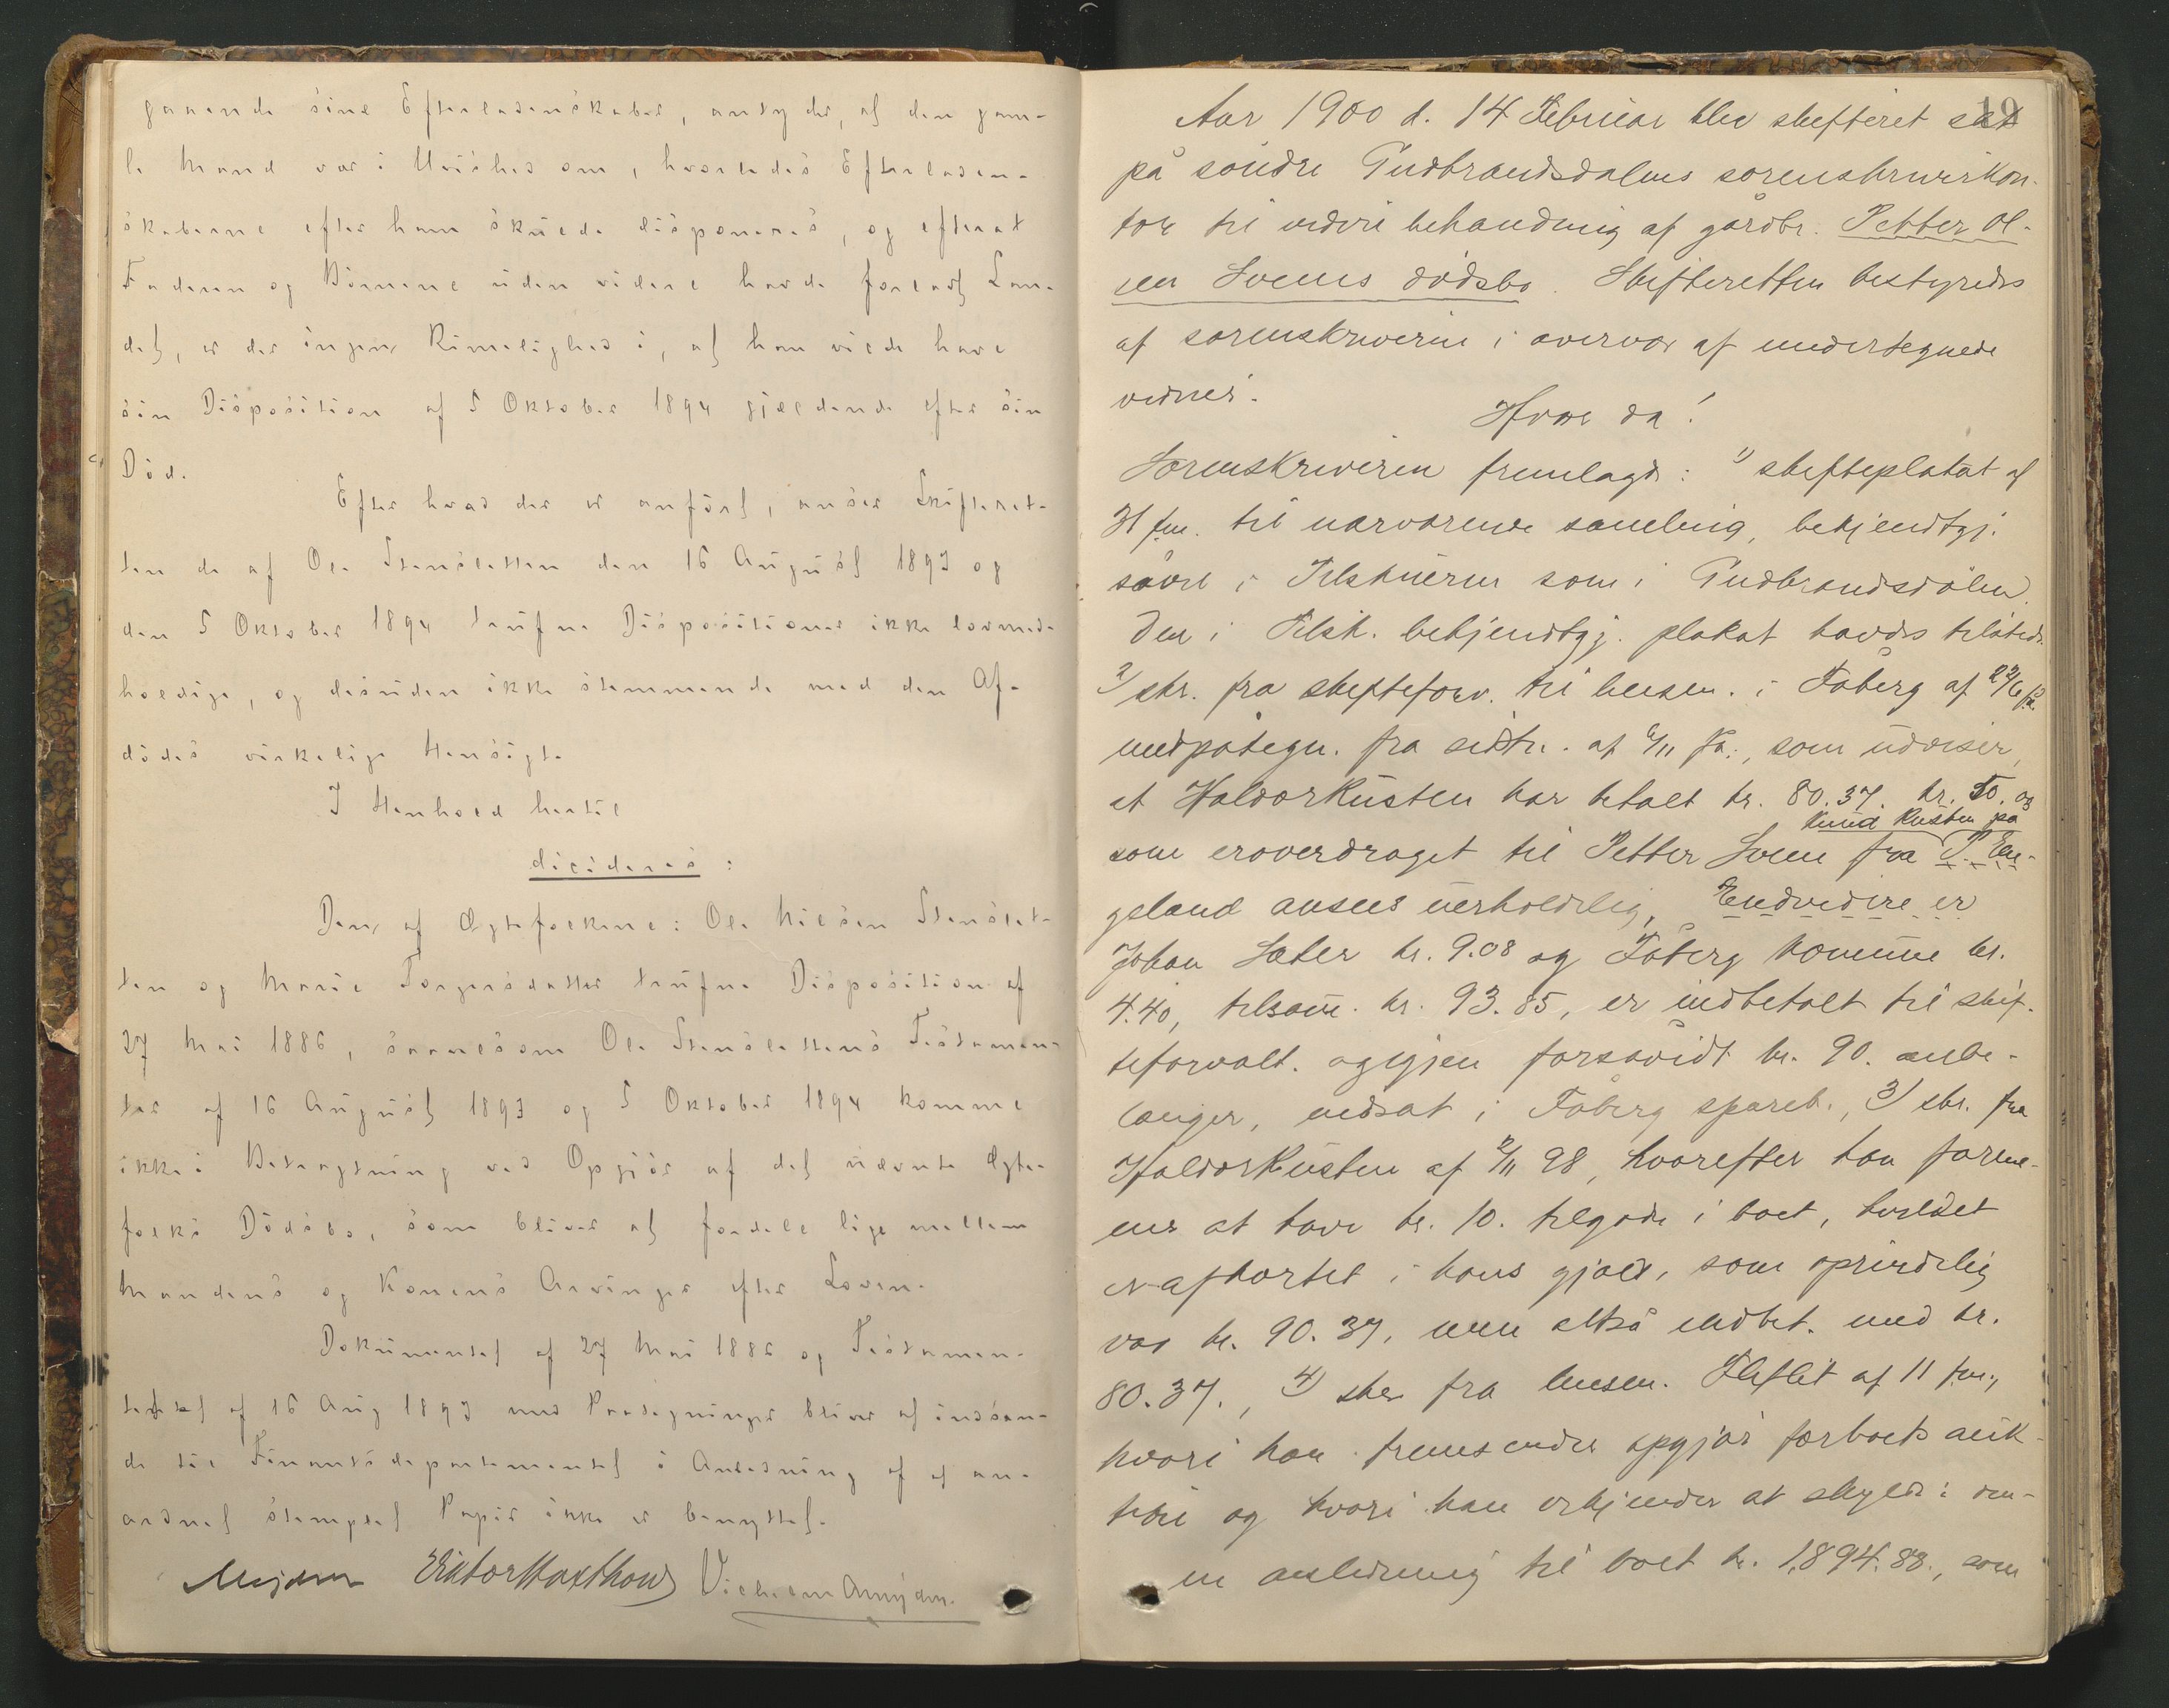 gaaende sine Efterladenskaber, antyder, at den gam-
le Mand var i Uvished om, hvorledes Efterladen-
skaberne efter ham skulde disponeres, og efterat
Faderen og Børnene uden videre havde forladt Lan-
det, er der ingen Rimelighed i, at han vilde have
sin Disposition af 5 Oktober 1894 gjældende efter sin
Død.
Efter hvad der er anført, anser Skifteret-
ten de af Ole Stenslетten den 16 August 1893 og
den 5 Oktober 1894 trufne Dispositioner ikke lovmed-
holdige, og desuden ikke stemmende med den Af-
dødes virkelige Hensigt.
I Henhold hertil
decideres:
Den af Ægtefolkene: Ole Nilsen Stenslet-
ten og Marie Torgersdatter trufne Disposition af
27 Mai 1886, saavelsom Ole Stenslettens Testamen-
ter af 16 August 1893 og 5 Oktober 1894 komme
ikke i Betragtning ved Opgjør af det nævnte Ægte-
folks Dødsbo, som bliver at fordele lige mellem
Mandens og Konens Arvinger efter Loven.
Dokumentet af 27 Mai 1886 og Testamen-
tet af 16 Aug 1893 med Paategninger bliver at indsen-
de til Finantsdepartementet i Anledning af at an-
ordnet stemplet Papir ikke er benyttet.
19
Aar 1900 d. 14 Februar blev skifteret sat
på søndre Gudbrandsdalens sorenskriverkon-
tor til videre behandling af gårdbr. Petter Ol-
sen Lviens dødsbo. Skifteretten bestyredes
af sorenskriveren i overvær af undertegnede
vidner.
Hvor da!
Sorenskriveren fremlagde: 1) skifteplakat af
31 f.m. til nærværende samling, bekjendtgj.
såvel i Tilskueren som i Gudbrandsdølen.
Den i Tilsk. bekjendtgj. plakat havdes tilstede.
2) skr. fra skifteforv. til lensm. i Fåberg af
medpåtegn. fra sidstn. af 6/11 f.a., som udviser,
at Haldor Kusten har betalt kr. 80.37. kr. 50. og
Knud Kusten på
som er overdraget til Petter Lvien fra P. En-
geland ansees uerholdelig, Endvidere er
Johan Sæter kr. 9.08 og Fåberg komune kr.
4.40, tilsam. kr. 93.85, er indbetalt til skif-
teforvalt. og igjen forsåvidt kr. 90. anbe-
langer, indsat i Fåberg spareb., 3) skr. fra
Haldor Kusten af 2/11 98, hvorefter han forme-
ner at have kr. 10. tilgode i boet, hvilket
er afkortet i hans gjæld, som oprindelig
var kr. 90.37, men altså indbet. med kr.
80.37., 4) skr. fra lensm. af 11 f.m.,
hvori han fremsender opgjør for boets auk-
tion og hvori han erkjender at skylde i den-
ne anledning til boet kr. 1,894.88., som